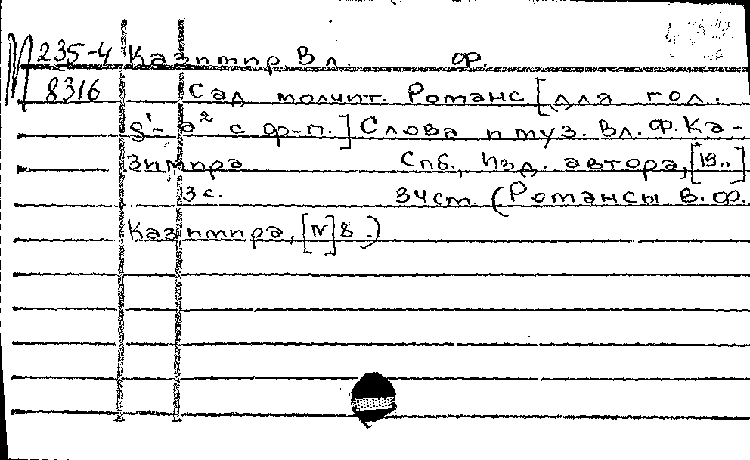 М 235-4 Казимир Вл. Ф.
8316 Сад молчит. Романс [для гол.
g¹-a² с ф-п.] Слова и муз. Вл. Ф. Ка-
зимира Спб., Изд. автора, [19..]
3 с. 34 см (Романсы В. Ф.
Казимира, [№] 8.)